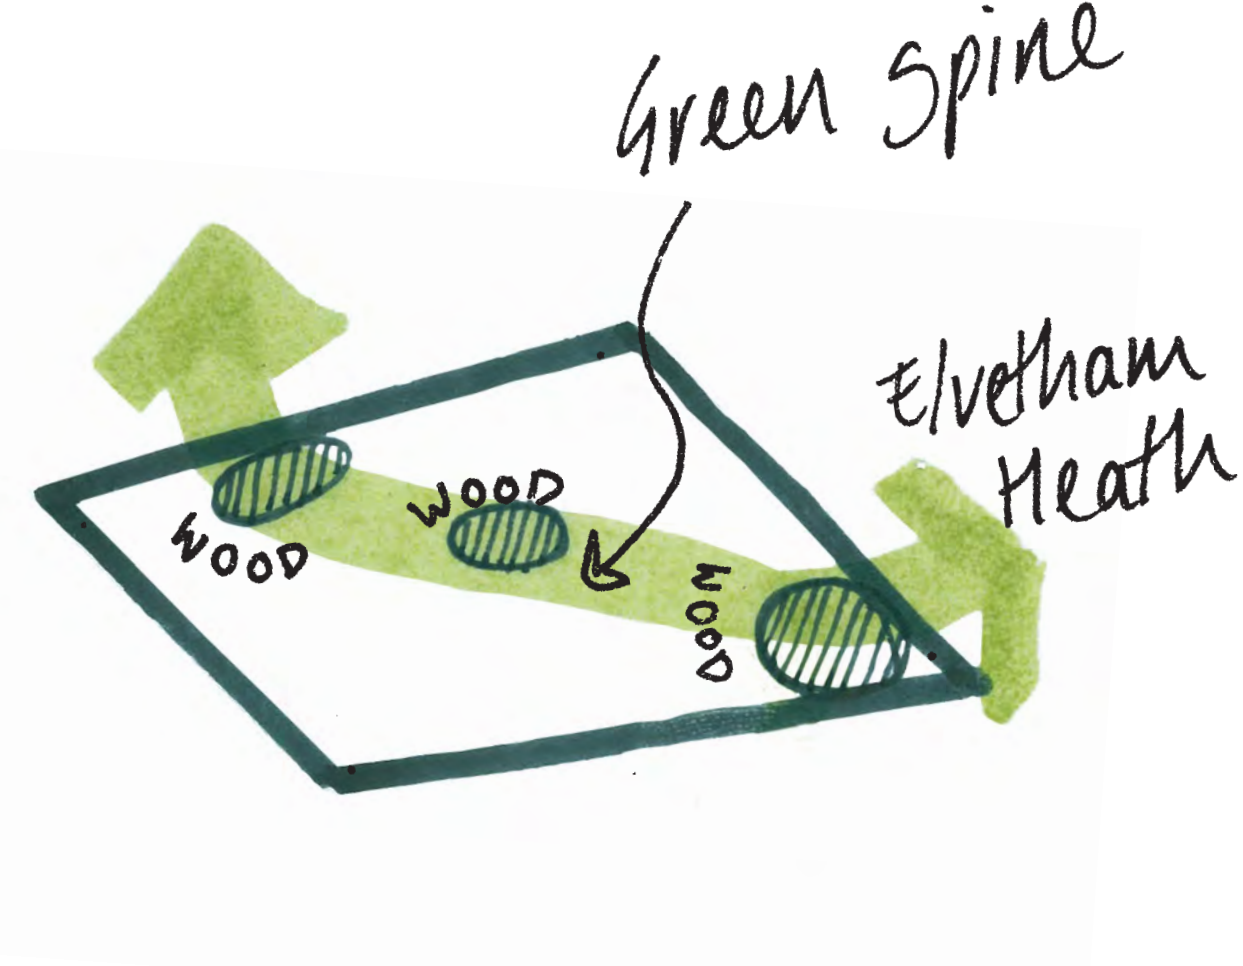 Green Spine
Elvetham
Heath
WOOD
WOOD
WOOD